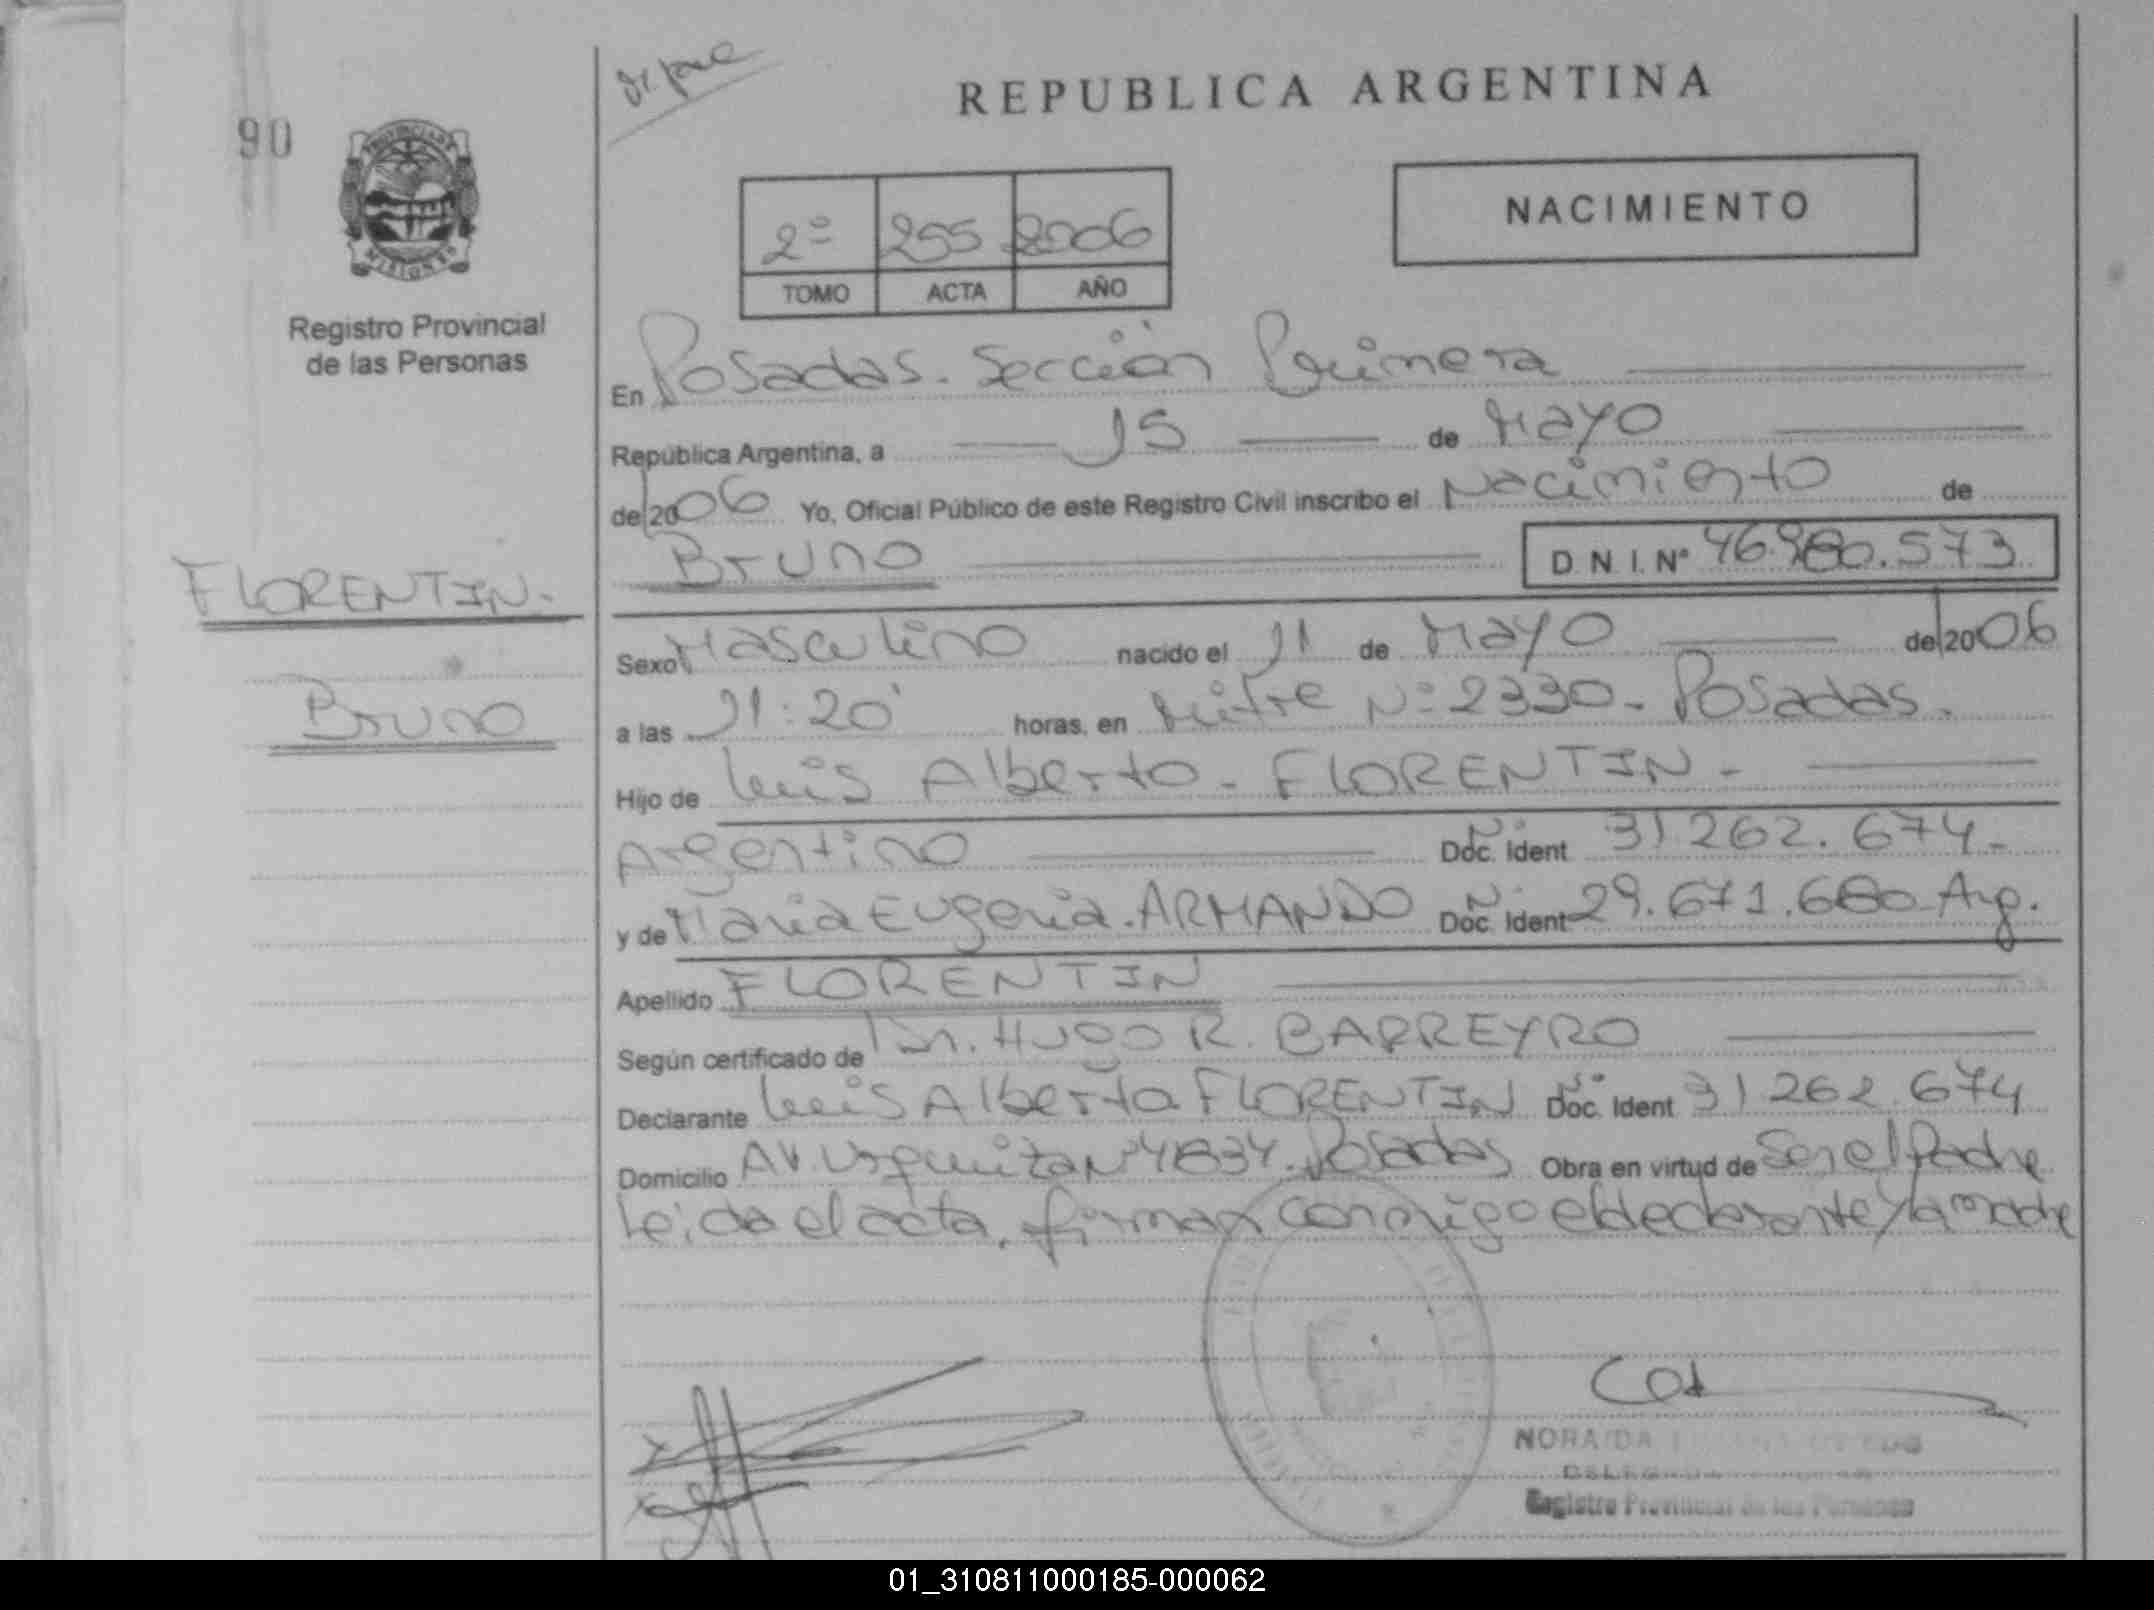 90
REPUBLICA ARGENTINA
NACIMIENTO
2º 255 2006
TOMO ACTA AÑO
PROVINCIA DE
MISIONES
Registro Provincial
de las Personas
En Posadas. Sección Primera
República Argentina, a 15 de Mayo
de 2006 Yo, Oficial Público de este Registro Civil inscribo el Nacimiento de
Bruno D.N.I. Nº 46.980.573
FLORENTIN.
Bruno
Sexo Masculino nacido el 11 de Mayo de 2006
a las 11:20' horas, en Mitre Nº 2330. Posadas.
Hijo de Luis Alberto - FLORENTIN -
Argentino Nº Doc. Ident 31.262.674-
y de Maria Eugenia. ARMANDO Nº Doc. Ident 29.671.680 Arg.
Apellido FLORENTIN
Según certificado de Dr. Hugo R. BARREYRO
Declarante Luis Alberto FLORENTIN Nº Doc. Ident 31262.674
Domicilio AV. Urquiza Nº 4834. Posadas Obra en virtud de Ser el Padre
Leida el acta, firman conmigo el declarante y la madre
NORAIDA
Registro Provincial de las Personas
01_310811000185-000062